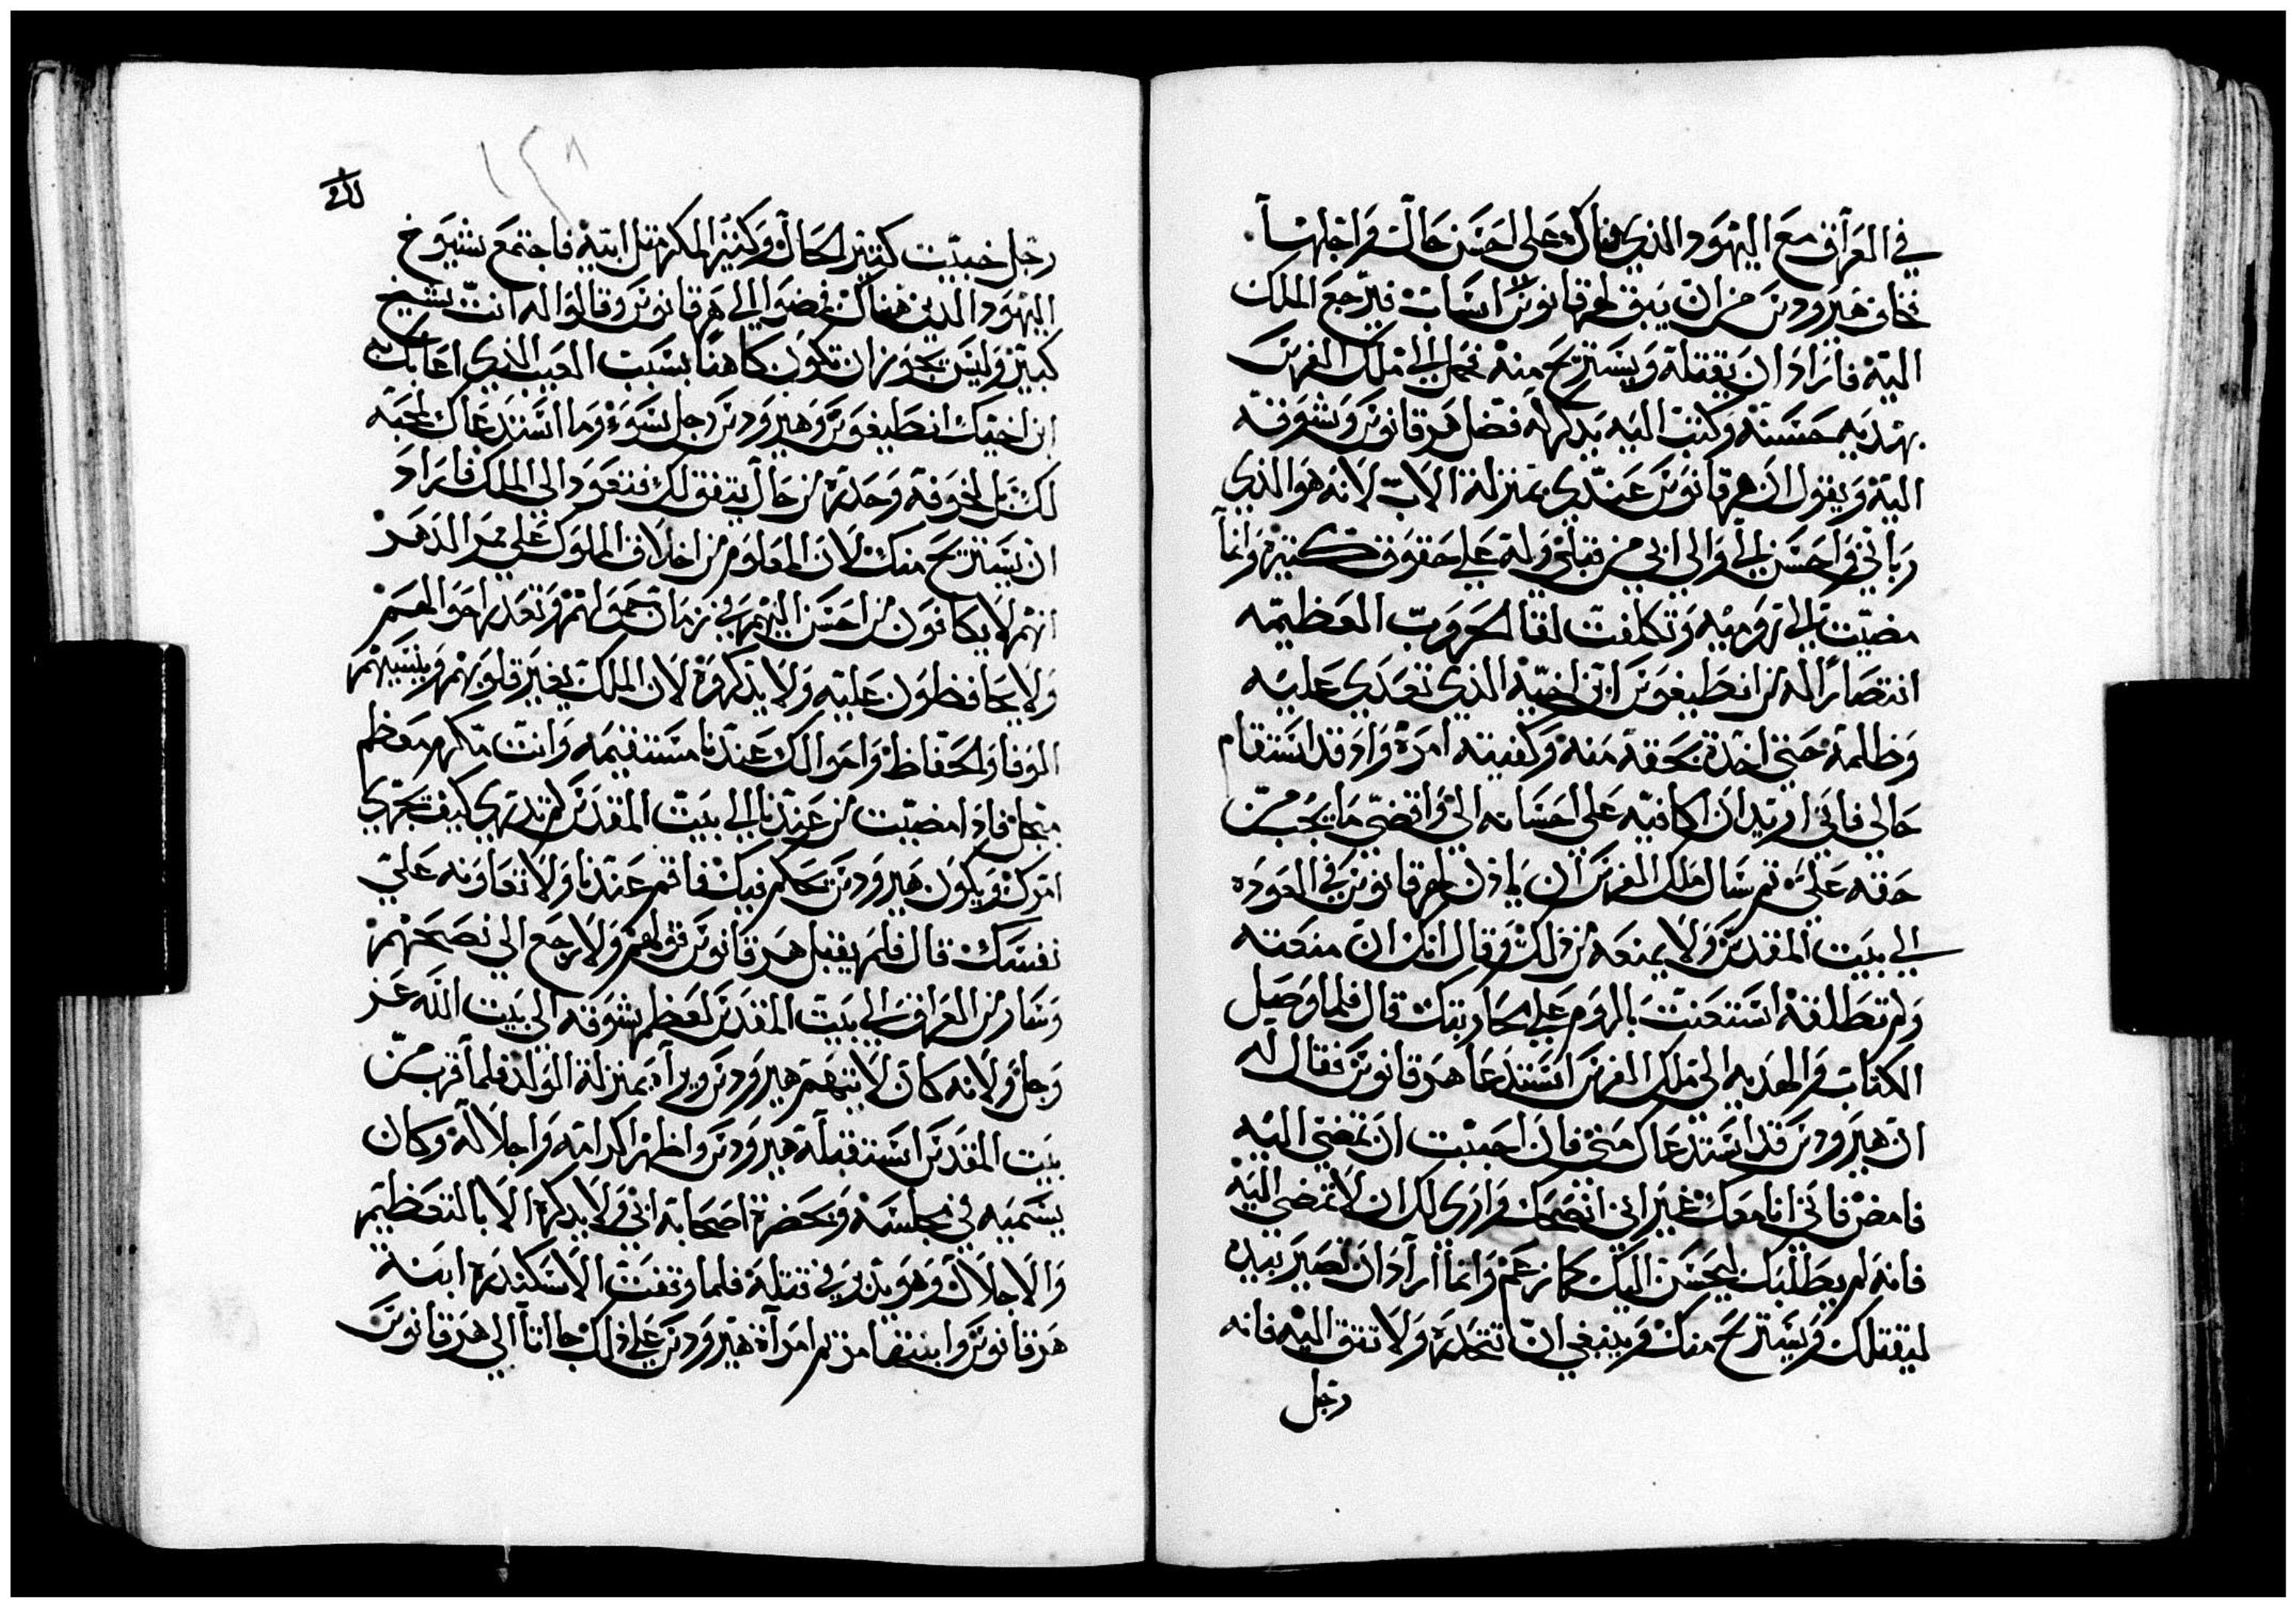 في العراق مع اليهود الذي هناك على احسن حال واجلها
فخاف هيرودس من ان يبقى لهرقانوس اسباب فيرجع الملك
اليه فاراد ان يقتله ويستريح منه فحمل الى ملك الفرس
بهديه حسنه وكتب اليه يدكر له فضل هرقانوس وشوقه
اليه ويقول ان هرقانوس عندي بمنزلة الاب لانه هو الذي
رباني واحسن الي والى ابي من قبلي وله علي حقوق كتيره وانما
مضيت الى روميه وتكلفت لقا الحروب العظيمه
انتصارا له من انطيغوس ابن اخيه الذي تعدي عليه
وظلمه حتى اخدة بحقه منه وكفيته امره واد قد استقام
حالي فاني اريد ان اكافيه على احسانه الي واقضي ما يجب من
حقه علي تم سال ملك الفرس ان يادن لهرقانوس في العوده
الى بيت المقدس ولا يمنعه من ذلك وقال انك ان منعته
ولم تطلقه استعنت بالروم على محاربتك قال فلما وصل
الكتاب والهديه الى ملك الفرس استدعا هرقانوس فقال له
ان هيرودس قد استدعاك مني فان احببت ان تمضي اليه
فامض فاني انا معك غير اني انصحك وارى لك ان لا تمضي اليه
فانه لم يطلبك ليحسن اليك كما زعم وانما اراد ان تصير بيده
ليقتلك ويستريح منك وينبغي ان تتحدره ولا تتق اليه فانه
رجل
١٢٨
رجل خبيت كتير المحال وكتير المكر متل ابيه فاجتمع شيوخ
اليهود الدين هناك فمضوا الى هرقانوس وقالوا له انت شيخ
كبير وليس يجوز ان تكون كاهنا بسبب العيب الذي اعابك به
ابن اخيك انطيغوس وهيرودس رجل سوء وما استدعاك لمحبه
لك بل لخوفه وحدره من حال يتفق لك فتعود الى الملك فاراد
ان يستريح منك لان المعلوم من اخلاق الملوك على ممر الدهر
انهم لا يكافون من احسن اليهم في زمان حمولهم وتعدر احوالهم
ولا يحافظون عليه ولا يدكروه لان الملك يغير قلوبهم وينسيهم
الوفا والحفاظ واحوالك عندنا مستقيمه وانت مكرم معظم
مبجل فادا مضيت من عندنا الى بيت المقدس لم تدري كيف تجري
امرك ويكون هيرودس يتحكم فيك فاقم عندنا ولا تعاونه علي
نفسك قال فلم يقبل هرقانوس قولهم ولا رجع الى نصحهم
وسار من العراق الى بيت المقدس لعظم شوقه الى بيت الله عز
وجل ولانه كان لا يتهم هيرودس ويراه بمنزلة الولد فلما قرب من
بيت المقدس استقبله هيرودس واظهر اكرامه واجلاله وكان
يسميه في مجلسه وبحضرة اصحابه ابي ولا يدكره الا بالتعظيم
والاجلال وهو يدبر في قتله فلما وقفت الاسكندره ابنة
هرقانوس وابنتها مريم امراة هيرودس على ذلك جااتا الى هرقانوس